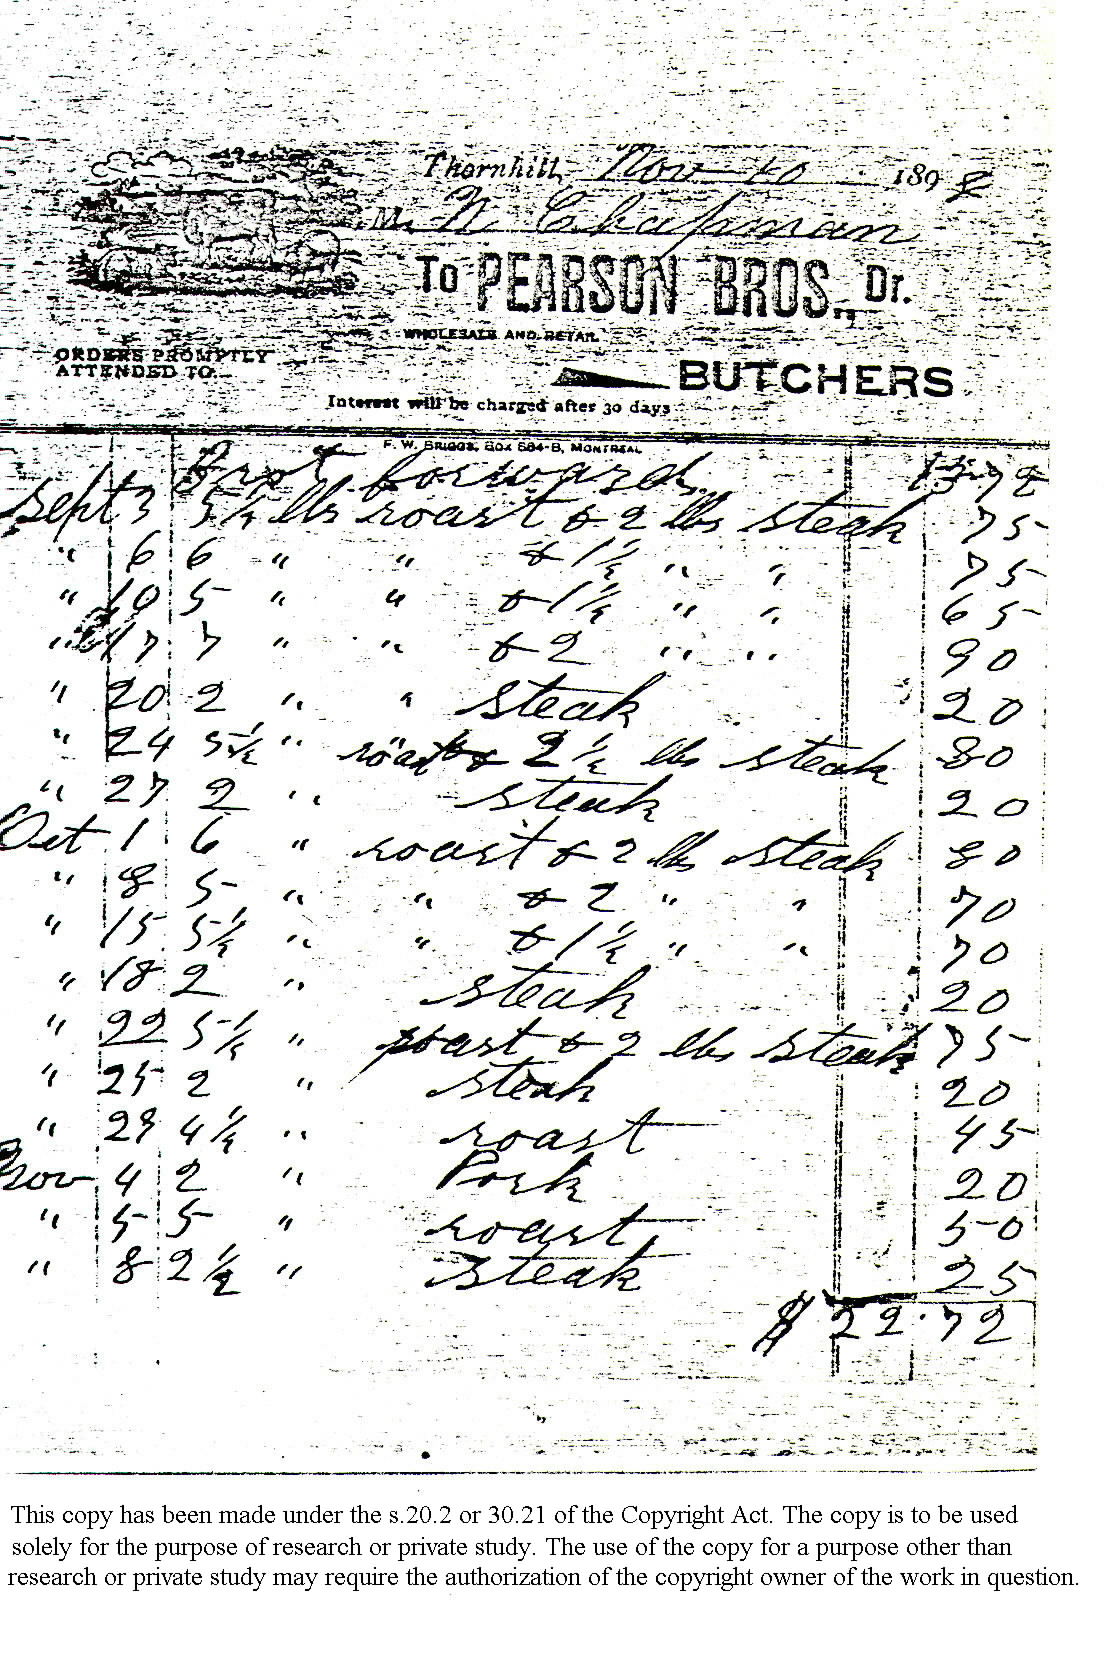 Thornhill, Nov 10 1898
M W Chapman
To PEARSON BROS., Dr.
WHOLESALE AND RETAIL
ORDERS PROMPTLY
ATTENDED TO.
BUTCHERS
Interest will be charged after 30 days
F. W. BRIGGS, BOX 564-B, MONTREAL
Brot forward 13 72
Sept 3 5½ lbs roast & 2 lbs steak 75
" 6 6 " " & 1½ " " 75
" 10 5 " " & 1½ " " 65
" 17 7 " " & 2 " " 90
" 20 2 " " steak 20
" 24 5½ " roast & 2½ lbs steak 80
" 27 2 " steak 20
Oct 1 6 " roast & 2 lbs steak 80
" 8 5 " " & 2 " " 70
" 15 5½ " " & 1½ " " 70
" 18 2 " steak 20
" 22 5½ " roast & 2 lbs steak 75
" 25 2 " steak 20
" 29 4½ " roast 45
Nov 4 2 " Pork 20
" 5 5 " roast 50
" 8 2½ " steak 25
$ 22.72
This copy has been made under the s.20.2 or 30.21 of the Copyright Act. The copy is to be used
solely for the purpose of research or private study. The use of the copy for a purpose other than
research or private study may require the authorization of the copyright owner of the work in question.